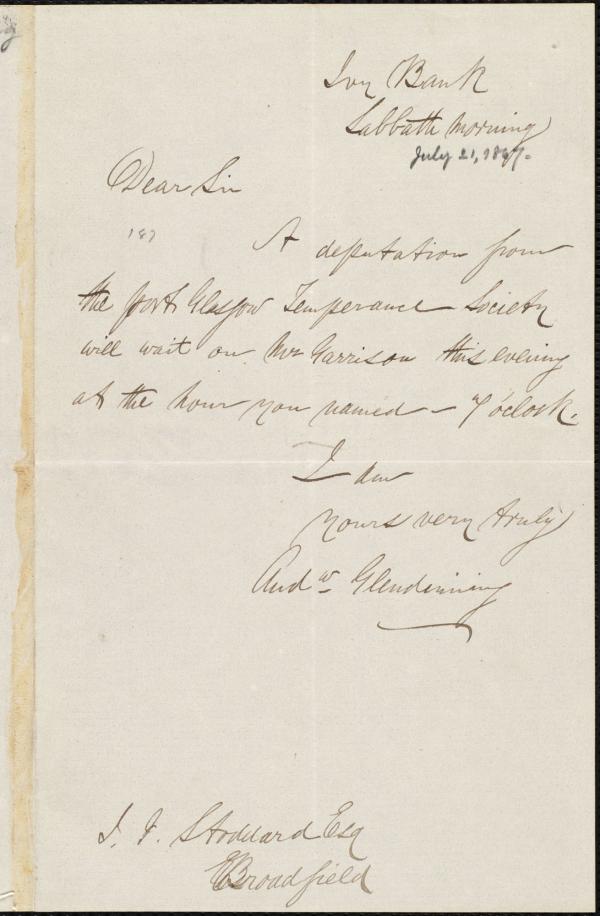 Ivy Bank
Sabbath Morning
July 21, 1867.
Dear Sir
187
A deputation from
the port Glasgow Temperance Society
will wait on Mr Garrison this evening
at the hour you named - 7 o'clock.
I am
yours very truly
Andw Glendinning
J. F. Stoddard Esq
Broadfield